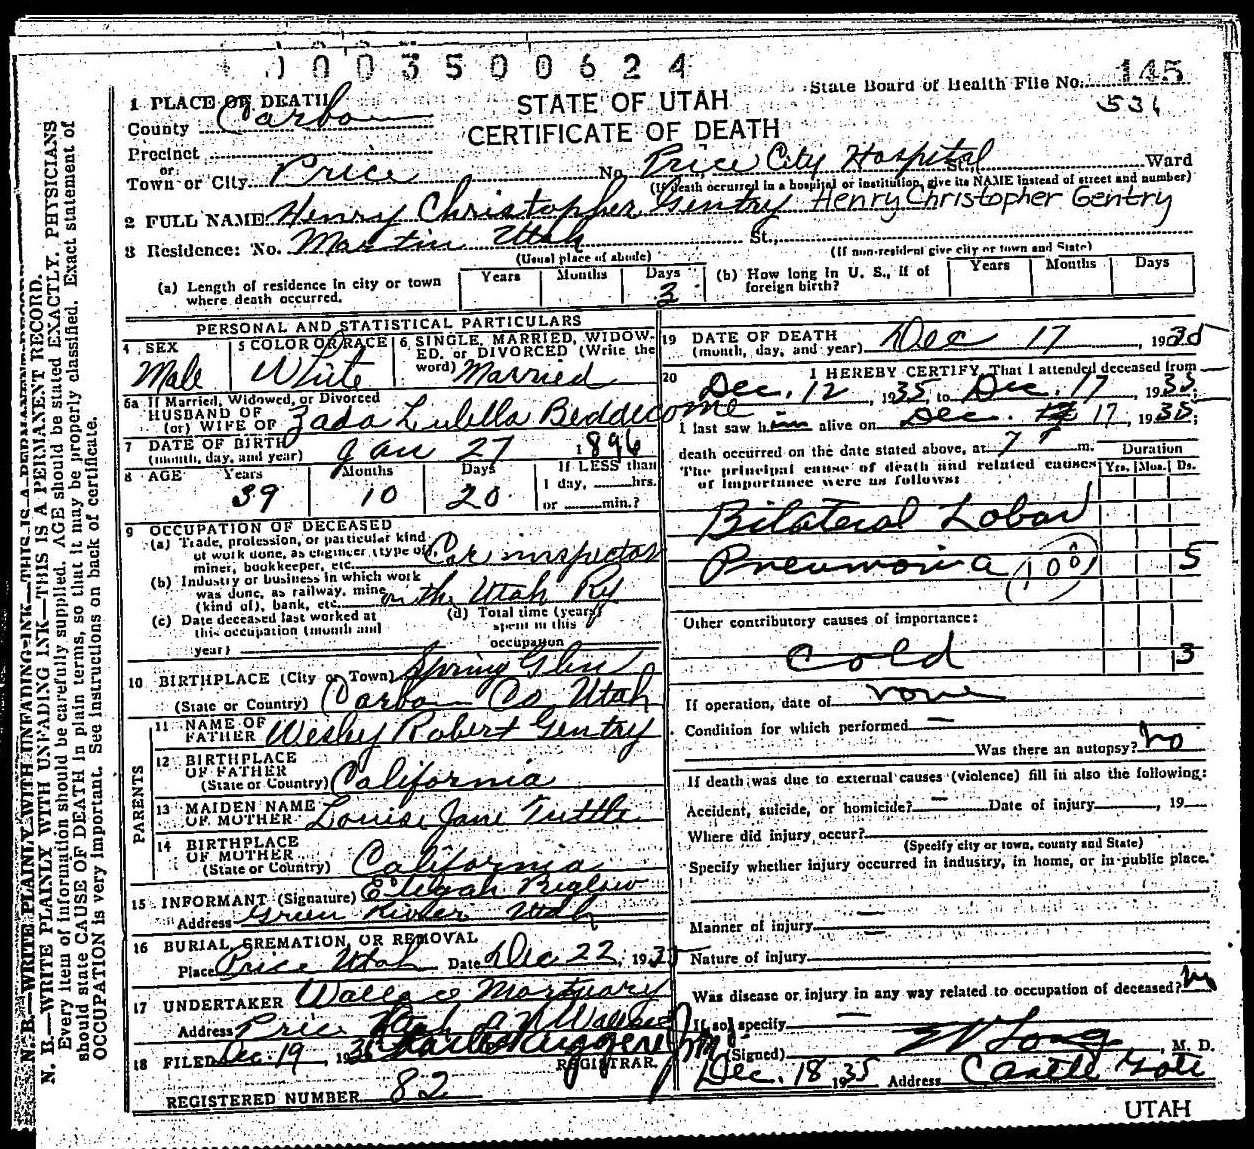 1003500624
State Board of Health File No. 145
531
1 PLACE OF DEATH
STATE OF UTAH
CERTIFICATE OF DEATH
County Carbon
Precinct
or
Town or City Price No. Price City Hospital St., Ward
(If death occurred in a hospital or institution, give its NAME instead of street and number)
2 FULL NAME Henry Christopher Gentry Henry Christopher Gentry
3 Residence: No. Martin Utah St.,
(Usual place of abode) (If non-resident give city or town and State)
(a) Length of residence in city or town where death occurred. Years Months Days 3
(b) How long in U. S., if of foreign birth? Years Months Days
PERSONAL AND STATISTICAL PARTICULARS
4 SEX Male
5 COLOR OR RACE White
6 SINGLE, MARRIED, WIDOWED, or DIVORCED (Write the word) Married
6a If Married, Widowed, or Divorced
HUSBAND OF
(or) WIFE OF Zada Lulella Beddecome
7 DATE OF BIRTH
(month, day, and year) Jan 27 1896
8 AGE Years 39 Months 10 Days 20 If LESS than 1 day, hrs. or min.?
9 OCCUPATION OF DECEASED
(a) Trade, profession, or particular kind of work done, as engineer (type of), miner, bookkeeper, etc. Car inspector
(b) Industry or business in which work was done, as railway, mine (kind of), bank, etc. on the Utah Ry
(c) Date deceased last worked at this occupation (month and year)
(d) Total time (years) spent in this occupation
10 BIRTHPLACE (City or Town) Spring Glen
(State or Country) Carbon Co Utah
PARENTS
11 NAME OF FATHER Wesley Robert Gentry
12 BIRTHPLACE OF FATHER
(State or Country) California
13 MAIDEN NAME OF MOTHER Louise Jane Tuttle
14 BIRTHPLACE OF MOTHER
(State or Country) California
15 INFORMANT (Signature) Elegah Biglow
Address Green River Utah
16 BURIAL, CREMATION, OR REMOVAL
Place Price Utah Date Dec 22, 1935
17 UNDERTAKER Wallace Mortuary
Address Price Utah
18 FILED Dec. 19, 1935
REGISTRAR.
REGISTERED NUMBER 82
19 DATE OF DEATH
(month, day, and year) Dec 17, 1935
20 I HEREBY CERTIFY, That I attended deceased from
Dec. 12, 1935, to Dec. 17 1935
I last saw him alive on Dec. 17, 1935;
death occurred on the date stated above, at 7 P m.
The principal cause of death and related causes of importance were as follows:
Duration
Yrs. Mos. Ds.
Bilateral Lobar
Pneumonia (108) 5
Other contributory causes of importance:
Cold 3
If operation, date of none
Condition for which performed —
Was there an autopsy? no
If death was due to external causes (violence) fill in also the following:
Accident, suicide, or homicide? — Date of injury , 19
Where did injury occur?
(Specify city or town, county and State)
Specify whether injury occurred in industry, in home, or in public place.
Manner of injury —
Nature of injury
Was disease or injury in any way related to occupation of deceased? no
If so, specify —
(Signed) Long M. D.
Dec. 18 1935 Address Castle Gate
UTAH
N. B.—WRITE PLAINLY WITH UNFADING INK—THIS IS A PERMANENT RECORD
N. B.—WRITE PLAINLY WITH UNFADING INK—THIS IS A PERMANENT RECORD.
Every item of information should be carefully supplied. AGE should be stated EXACTLY. PHYSICIANS
should state CAUSE OF DEATH in plain terms, so that it may be properly classified. Exact statement of
OCCUPATION is very important. See instructions on back of certificate.